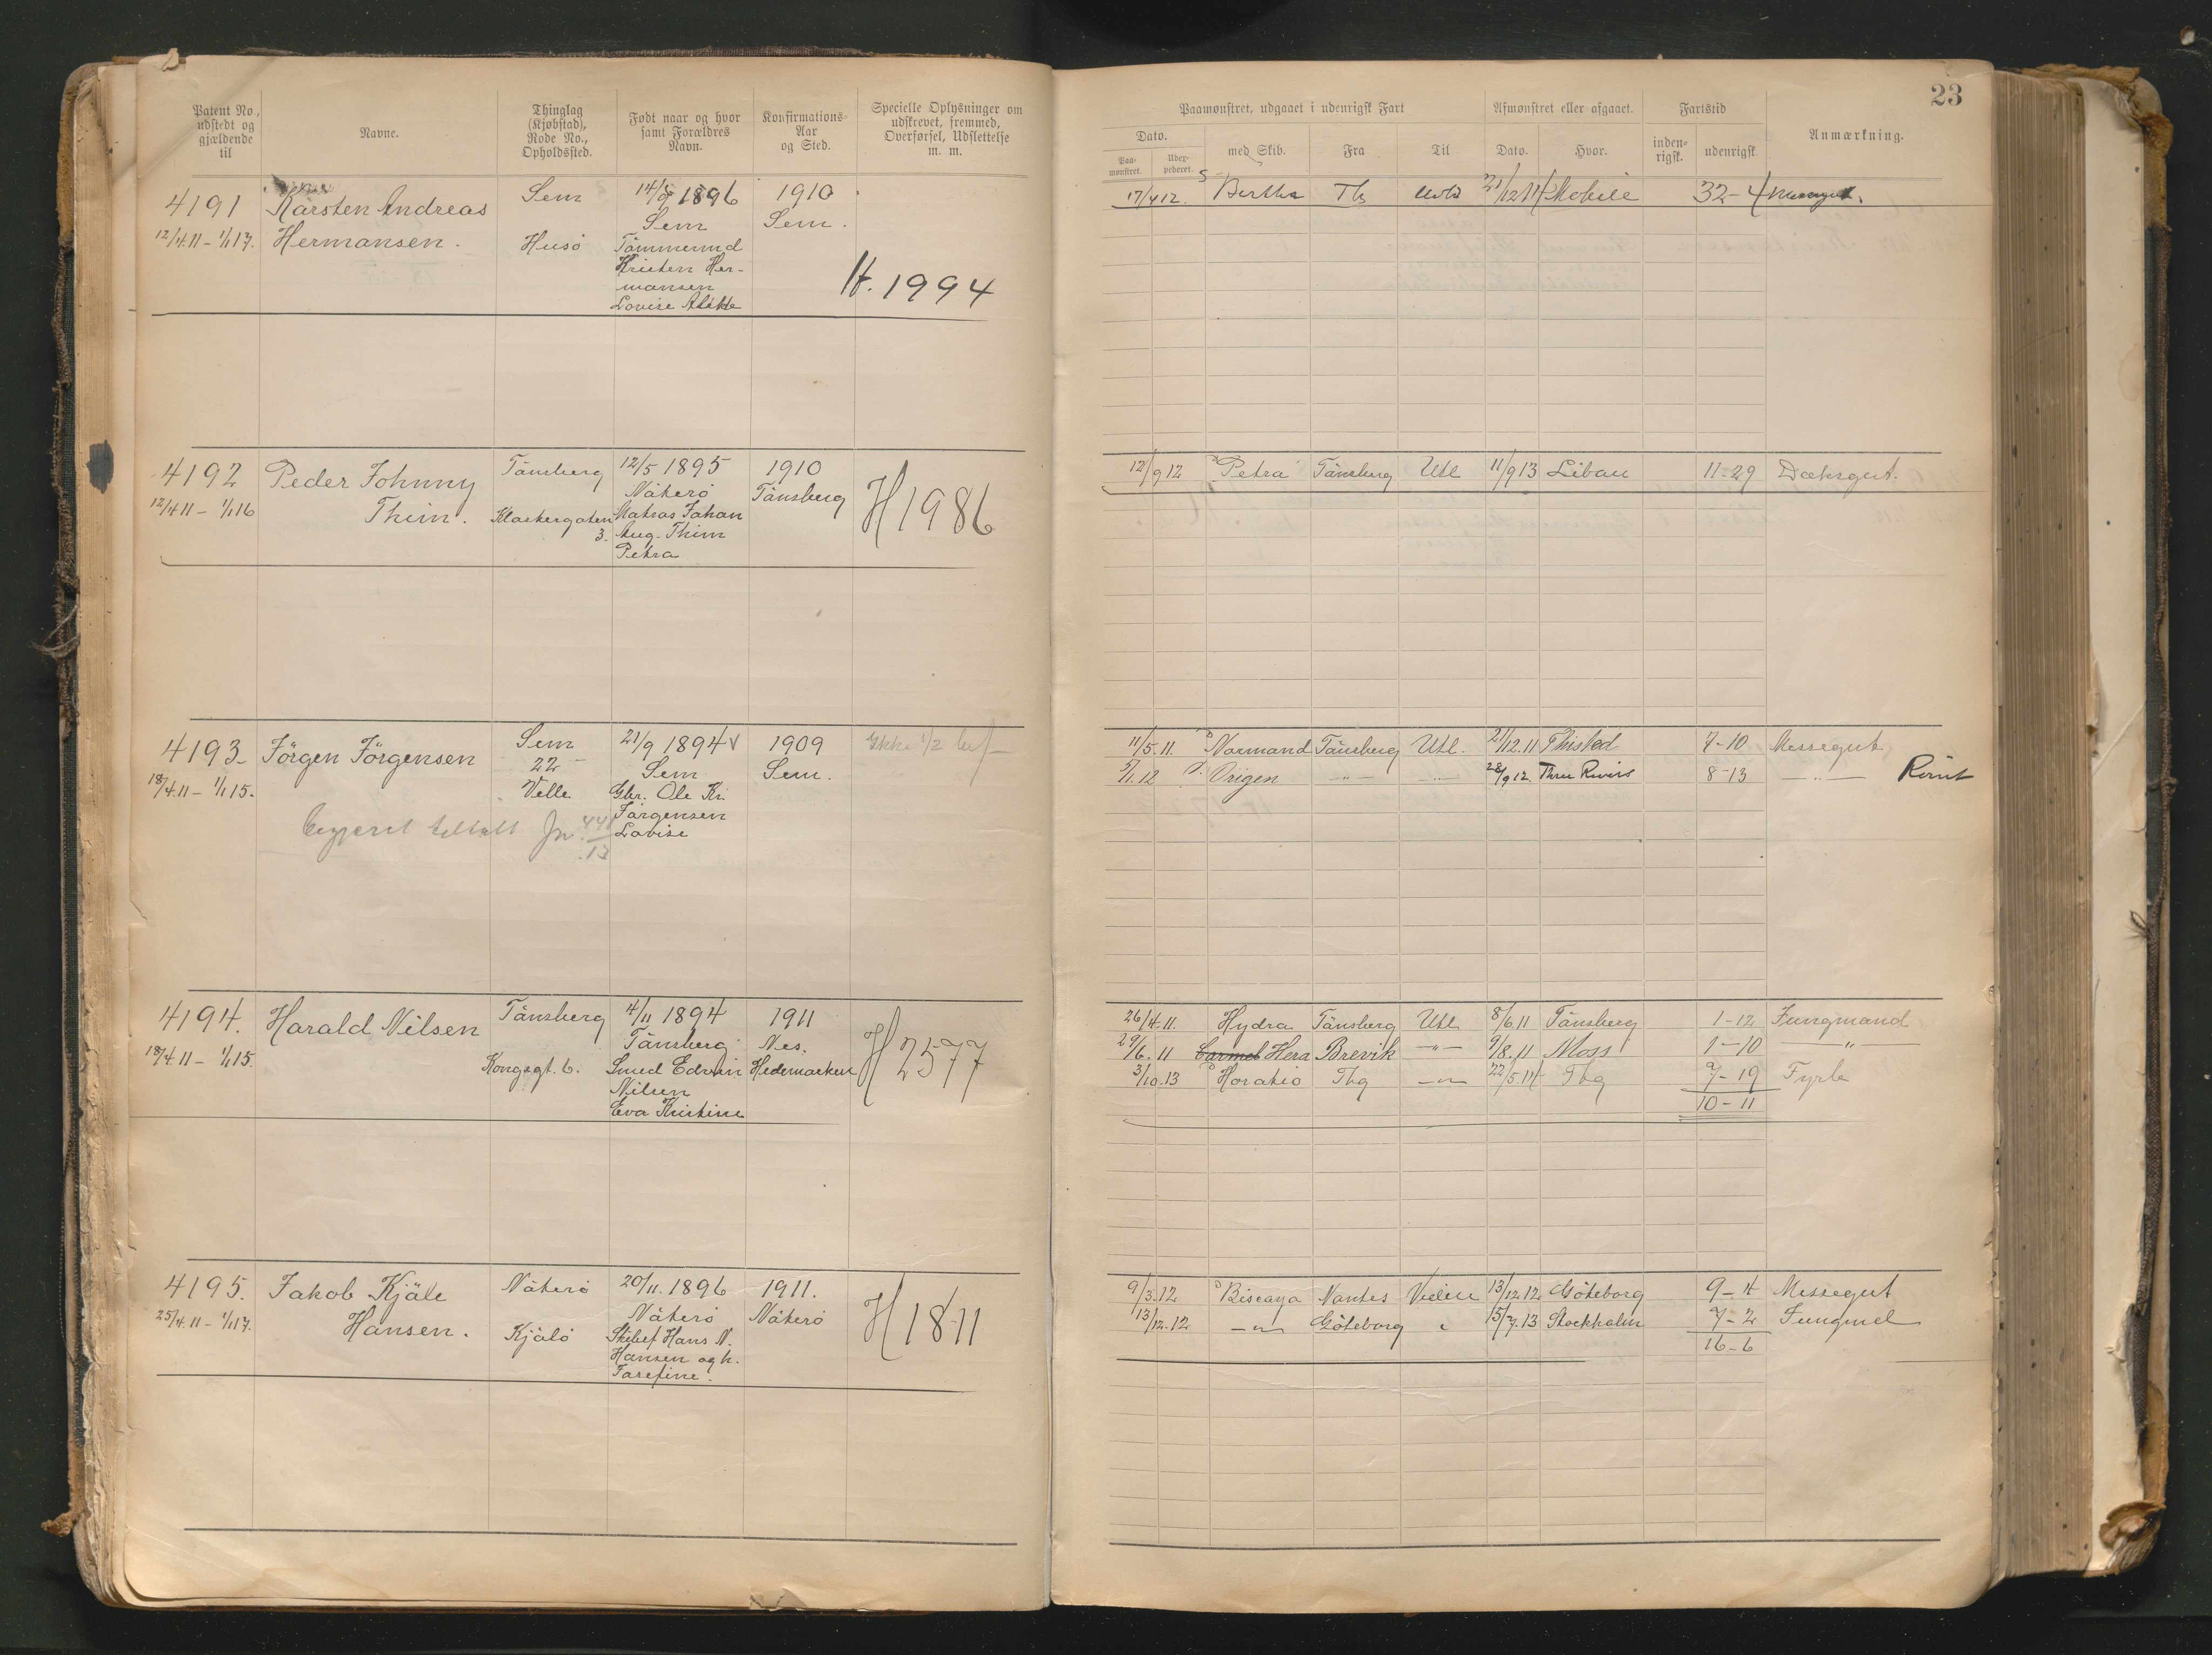 23
Patent No. udstedt og gjældende til
Navne.
Thinglag (Kjøbstad), Rode No., Opholdssted.
Født naar og hvor samt Forældres Navn.
Konfirmations-Aar og Sted.
Specielle Oplysninger om udskrevet, fremmed, Overførsel, Udslettelse m. m.
Paamønstret, udgaaet i udenrigsk Fart
Afmønstret eller afgaaet.
Fartstid
Anmærkning.
Dato.
Paa-mønstret.
Udex-pederet.
med Skib.
Fra
Til
Dato.
Hvor.
inden-rigsk.
udenrigsk.
4191 Karsten Andreas Sem 14/9 1896 1910
12/4.11 – 1/1 17. Hermansen. Husö Sem Sem.
Tömmermd
Kristen Her-
mansen
Lovise
H. 1994
17/4 12. S Bertha Tb 21/12 14 Mobile 32-4
4192 Peder Johnny Tönsberg 12/5 1895 1910
12/4 11 – 1/1 16 Thim. Klostergaten 3. Nöterö Tönsberg
Matros Johan
Aug. Thim
Petra
H 1986
12/9 12 Petra Tönsberg Utl 11/9 13 Libau 11-29 Dæksgut.
4193. Jörgen Jörgensen Sem 21/9 1894 1909 Ikke 1/2
18/4.11 – 1/1 15. 22 Sem Sem.
Velle Gbr. Ole Kr.
Jörgensen
Lovise
Jn. 441
13
11/5.11. Normand Tönsberg Utl. 21/12.11 Thisted 7-10 Messegut
5/1.12 Origen –"– –"– 28/9 12 Three Rivers 8-13 –"– Römt
4194. Harald Nilsen Tönsberg 4/11 1894 1911
18/4 11 – 1/1 15. Kongsgt. 6. Tönsberg Nes.
Smed Edvin Hedemarken
Nilsen
Eva Kristine
H 2577
26/4.11. Hydra Tönsberg Utl 8/6.11 Tönsberg 1-12 Jungmand
29/6.11 Carmel Hera Brevik –"– 9/8.11 Moss 1-10 –"–
3/10.13 Horatio Tbg –"– 22/5.14 Tbg 7-19 Fyrb
10-11
4195. Jakob Kjäle Nöterö 20/11.1896 1911.
25/4.11 – 1/1 17. Hansen. Kjöló Nöterö Nöterö
Skibsf Hans N.
Hansen og h.
Josefine.
H 1811
9/3.12 Biscaya Nantes 13/12.12 Göteborg 9-4 Messegut
13/12.12 –"– Göteborg 15/7.13 Stockholm 7-2 Jungmd
16-6